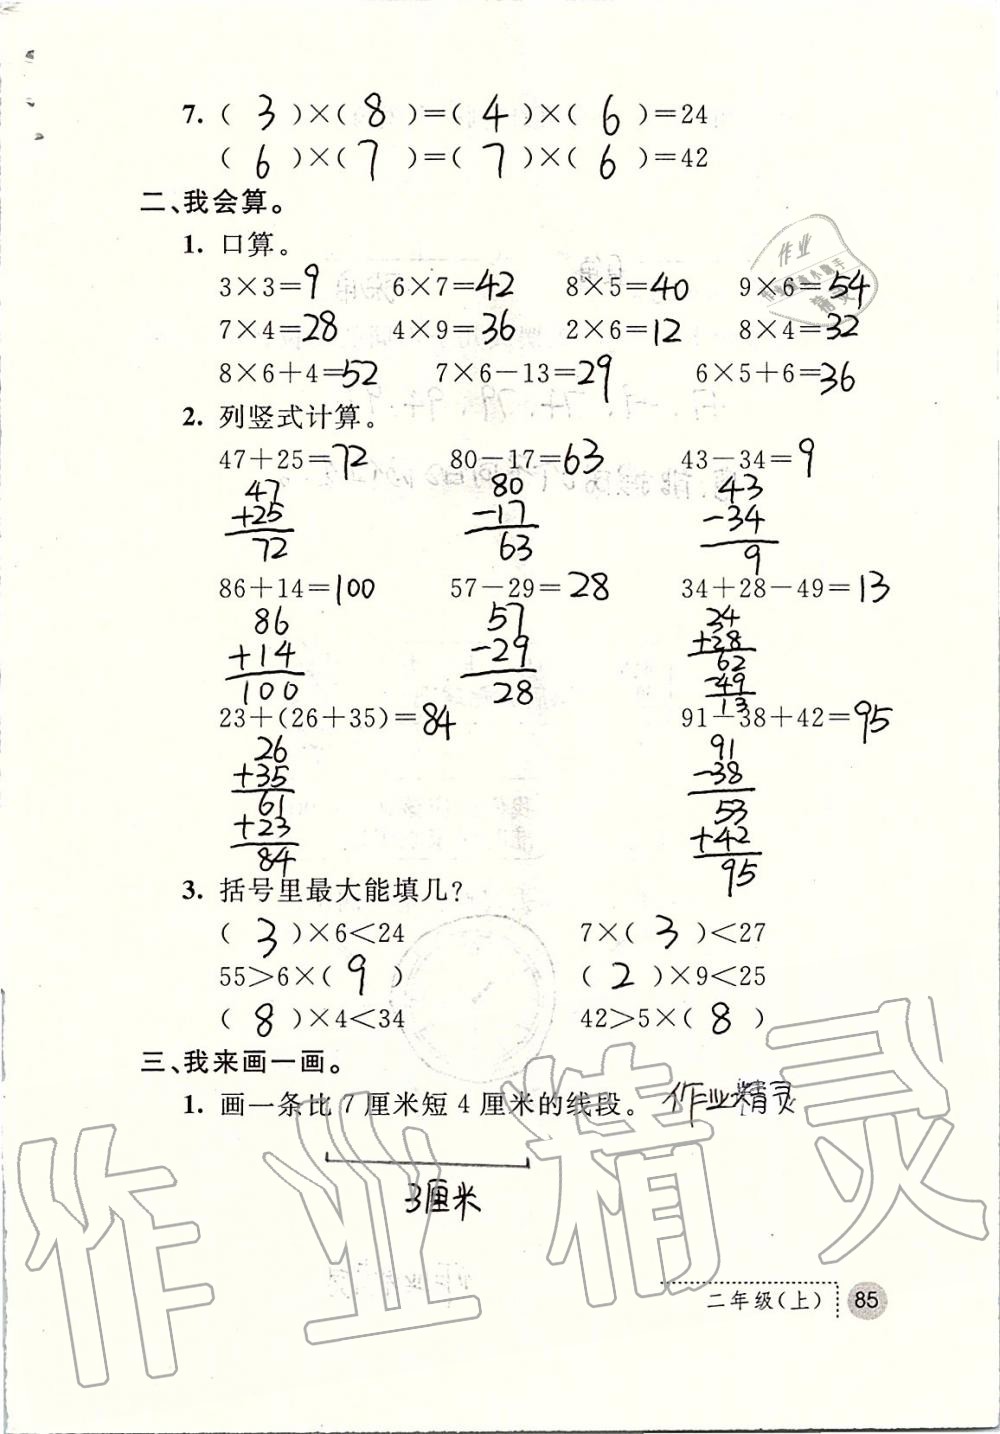 7. ( 3 )×( 8 )=( 4 )×( 6 )=24
( 6 )×( 7 )=( 7 )×( 6 )=42
二、我会算。
1. 口算。
3×3=9 6×7=42 8×5=40 9×6=54
7×4=28 4×9=36 2×6=12 8×4=32
8×6+4=52 7×6-13=29 6×5+6=36
2. 列竖式计算。
47+25=72 80-17=63 43-34=9
47 80 43
+25 -17 -34
72 63 9
86+14=100 57-29=28 34+28-49=13
86 57 34
+14 -29 +28
100 28 62
-49
13
23+(26+35)=84 91-38+42=95
26 91
+35 -38
61 53
+23 +42
84 95
3. 括号里最大能填几?
( 3 )×6<24 7×( 3 )<27
55>6×( 9 ) ( 2 )×9<25
( 8 )×4<34 42>5×( 8 )
三、我来画一画。
1. 画一条比 7 厘米短 4 厘米的线段。 作业精灵
3厘米
二年级(上) 85
作业精灵